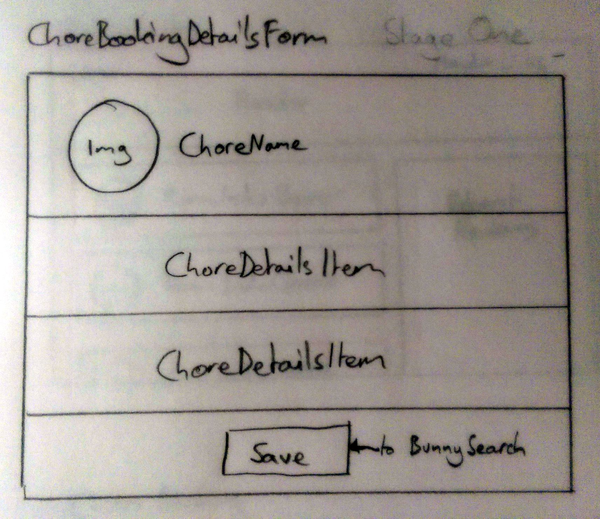 ChoreBookingDetailsForm Stage One
Img ChoreName
ChoreDetailsItem
ChoreDetailsItem
Save to BunnySearch